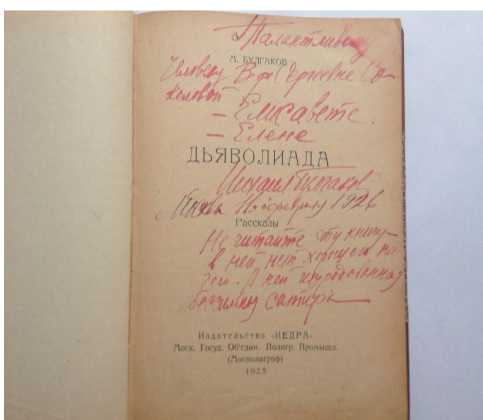 Талантливому
М. БУЛГАКОВ
Человеку Вере Сергеевне Со-
коловой
– Елисавете.
– Елене
ДЬЯВОЛИАДА
Михаил Булгаков
11 февраля 1926
Рассказы
Не читайте эту книгу –
в ней нет хорошего ни-
чего. В ней
сатира –
Издательство «НЕДРА»
Моск. Госуд. Об'един. Полигр. Промышл.
(Мосполиграф)
1925